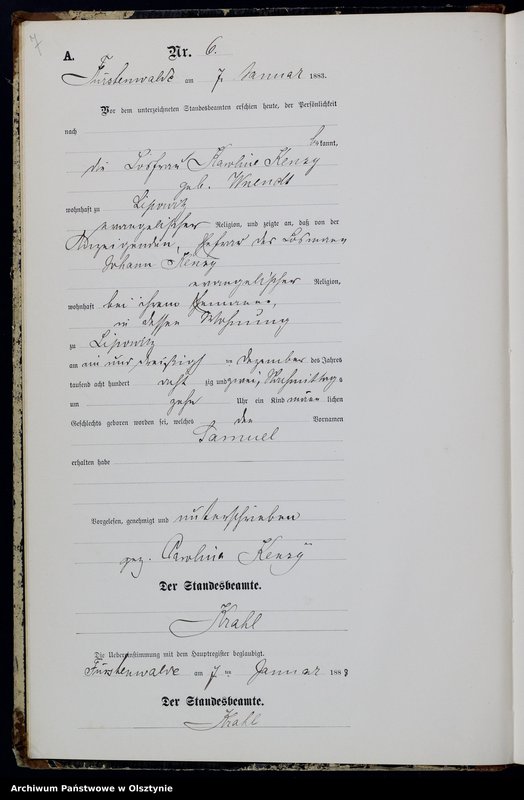 7
A.
Nr. 6.
Fürstenwalde am 7. Januar 1883.
Vor dem unterzeichneten Standesbeamten erschien heute, der Persönlichkeit
nach
bekannt,
die Losfrau Karoline Kensy
geb.
wohnhaft zu Lipowitz
evangelischer Religion, und zeigte an, daß von der
Anzeigenden, Ehefrau des Losmann
Johann Kensy
evangelischer Religion,
wohnhaft bei ihrem Ehemanne,
in dessen Wohnung
zu Lipowitz
am ein und dreißigst ten Dezember des Jahres
tausend acht hundert acht zig und zwei, Nachmittags
um zehn Uhr ein Kind männ lichen
Geschlechts geboren worden sei, welches den Vornamen
Samuel
erhalten habe
Vorgelesen, genehmigt und unterschrieben
gez. Karolina Kensy
Der Standesbeamte.
Krahl
Die Uebereinstimmung mit dem Hauptregister beglaubigt.
Fürstenwalde am 7 ten Januar 1883
Der Standesbeamte.
Krahl
Archiwum Państwowe w Olsztynie